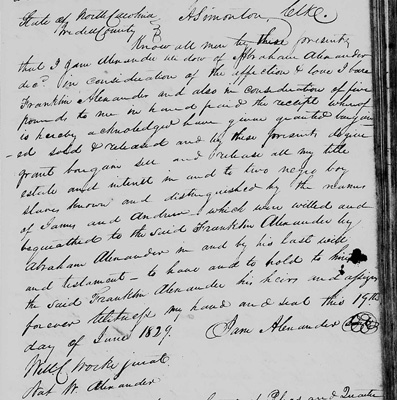 State of North Carolina   A Simonton, Clk.
Iredell County
Know all men by these presents
that I Jam Alexander widow of Abraham Alexander
decd in consideration of the affection & love I bare
Franklin Alexander and also in consideration of five
pounds to me in hand paid the receipt whereof
is hereby acknoledged have given granted bargain
-ed sold & released and by these presents do give
grant bargain sell and release all my title
estate and intrest in and to two negro boy
slaves known and distinguished by the names
of James and Andrew - which were willed and
bequeathed to the said Franklin Alexander by
Abraham Alexander in and by his last will
and testament - to have and to hold to him
the said Franklin Alexander his heirs and assigns
forever Witness my hand and seal this 19th
day of June 1829.   Jam Alexander
Will C
Nat W. Alexander
and Quarter